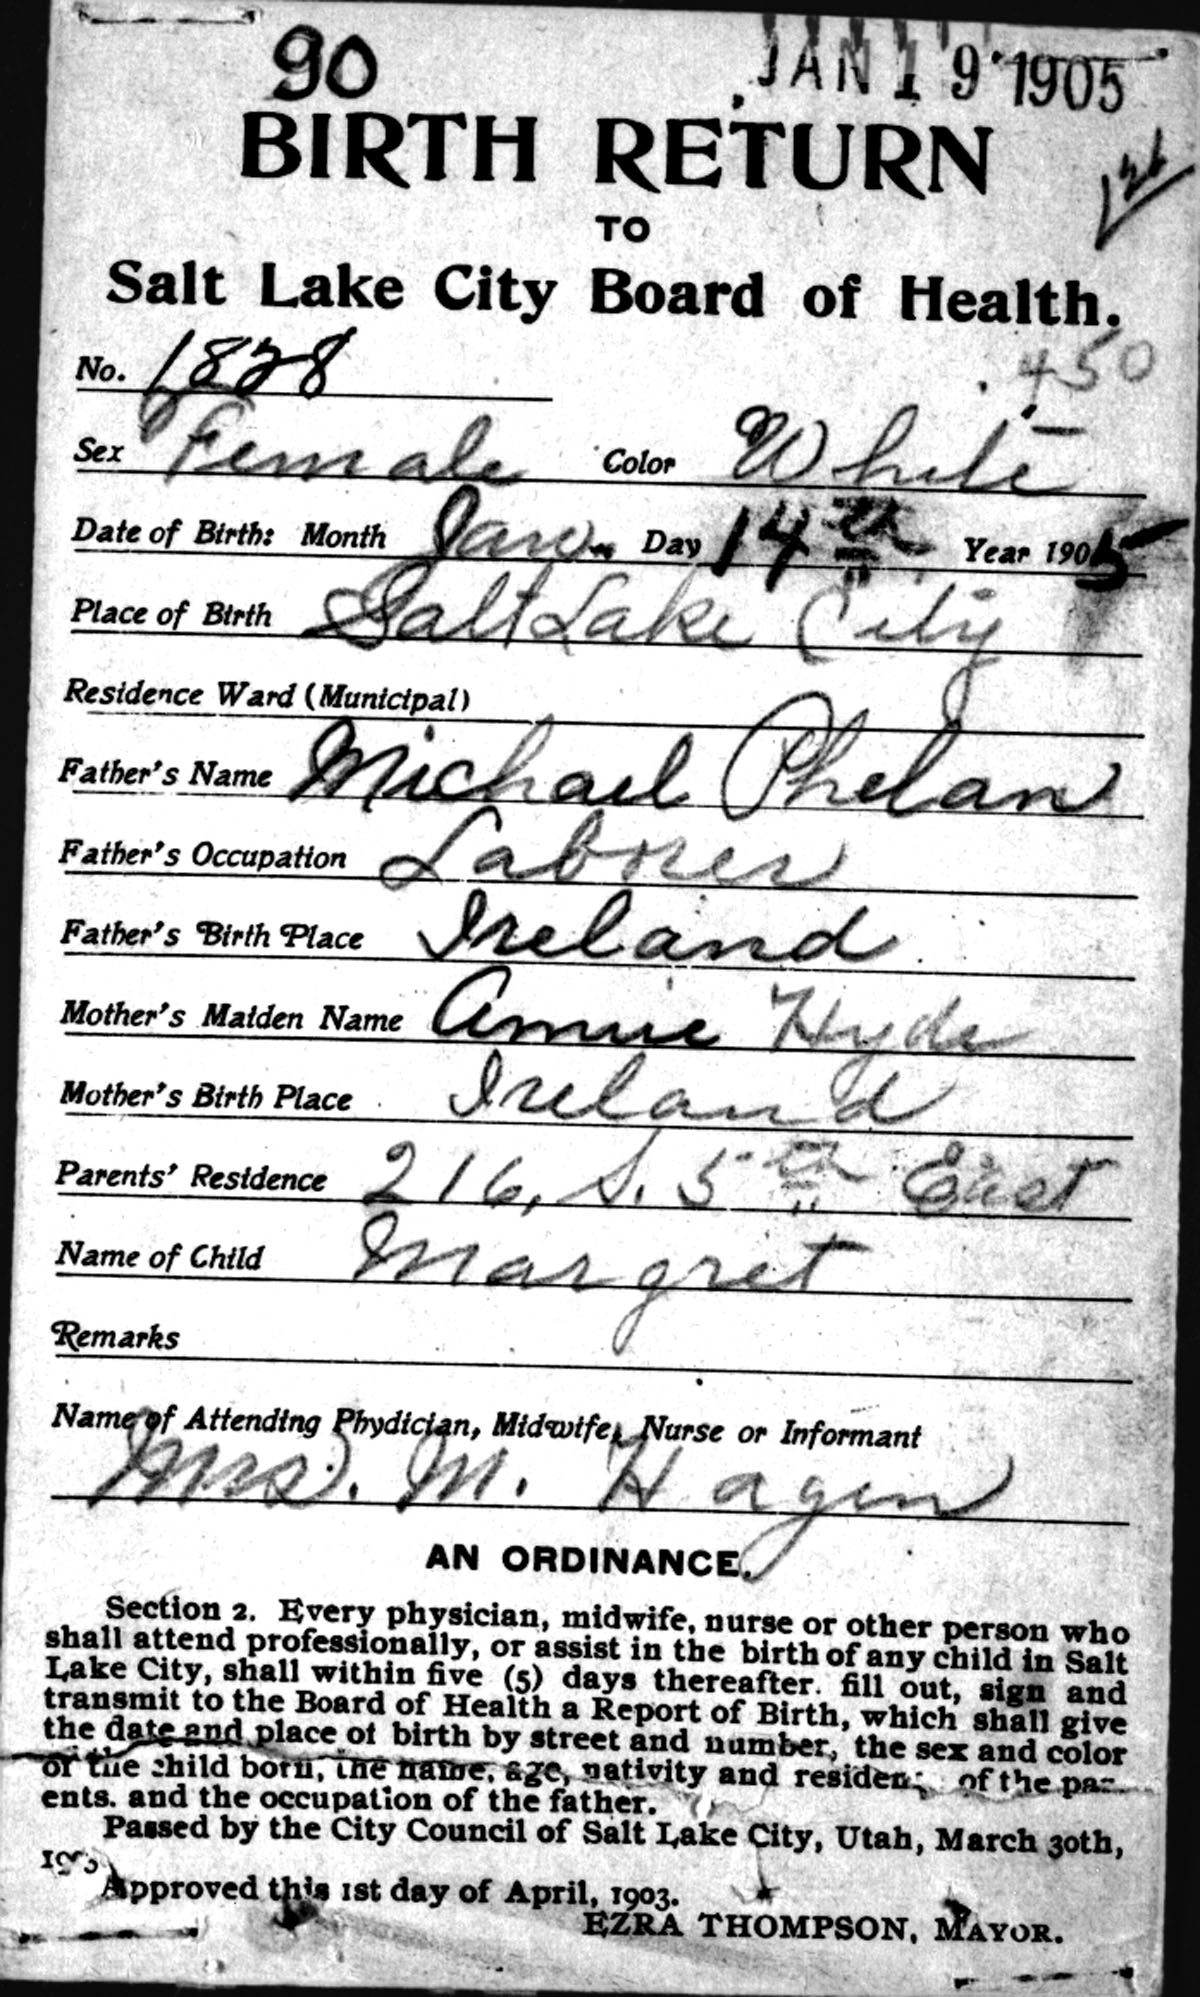 90 JAN 19 1905
BIRTH RETURN
TO
Salt Lake City Board of Health.
No. 1828 450
Sex Female Color White
Date of Birth: Month Jan. Day 14th Year 1905
Place of Birth Salt Lake City
Residence Ward (Municipal)
Father's Name Michael Phelan
Father's Occupation Laborer
Father's Birth Place Ireland
Mother's Maiden Name Annie Hyde
Mother's Birth Place Ireland
Parents' Residence 216, S. 5th East
Name of Child Margret
Remarks
Name of Attending Phydician, Midwife, Nurse or Informant
Mrs. M. Hagen
AN ORDINANCE.
Section 2. Every physician, midwife, nurse or other person who
shall attend professionally, or assist in the birth of any child in Salt
Lake City, shall within five (5) days thereafter. fill out, sign and
transmit to the Board of Health a Report of Birth, which shall give
the date and place of birth by street and number, the sex and color
of the child born, the name, age, nativity and residence of the par-
ents. and the occupation of the father.
Passed by the City Council of Salt Lake City, Utah, March 30th,
190
Approved this 1st day of April, 1903.
EZRA THOMPSON, MAYOR.